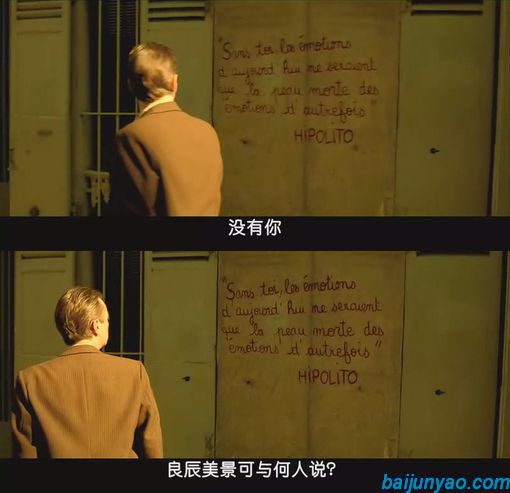 "Sans toi, les émotions
d'aujourd'hui ne seraient
que la peau morte des
émotions d'autrefois"
HIPOLITO
没有你
"Sans toi, les émotions
d'aujourd'hui ne seraient
que la peau morte des
émotions d'autrefois"
HIPOLITO
良辰美景可与何人说?
baijunyao.com